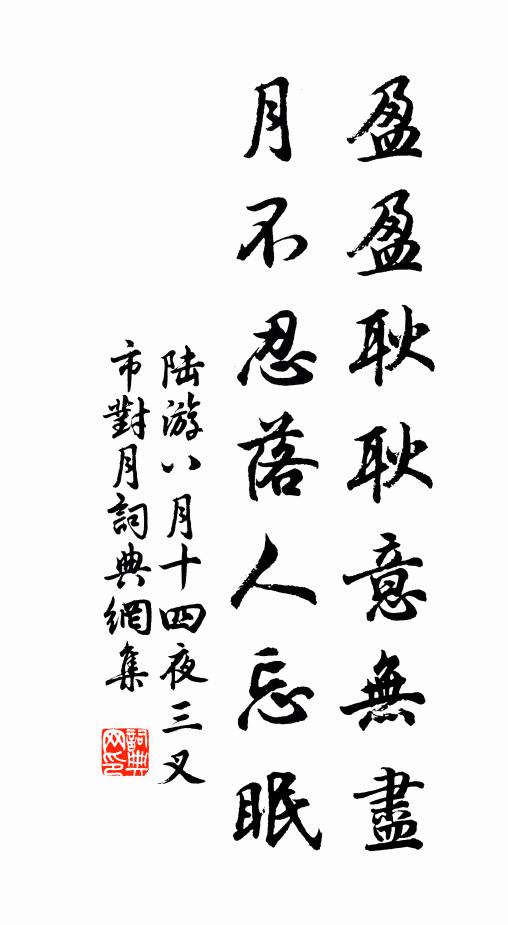 盈盈耿耿意無盡
月不忍落人忘眠
陸游八月十四夜三叉
市對月詞典網集
詞典网印